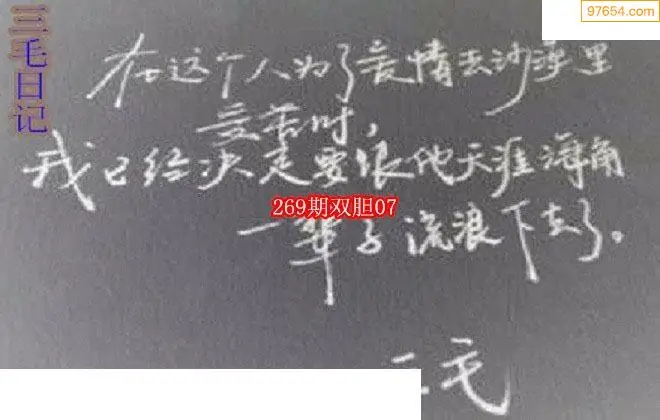 97654.com
三毛日记
在这个人为了爱情去沙漠里
受苦时,
我已经决定要跟他天涯海角
269期双胆07
一辈子流浪下去了。
三毛